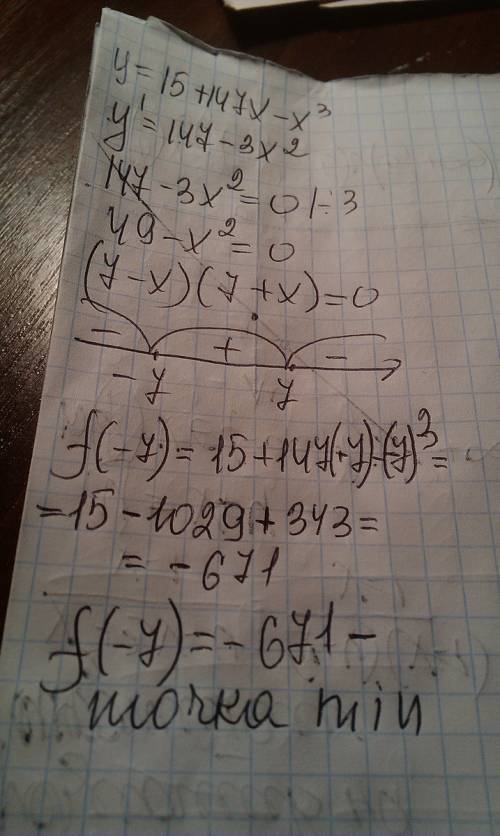 y = 15 + 147x - x³
y' = 147 - 3x²
147 - 3x² = 0 | ÷ 3
49 - x² = 0
(7 - x)(7 + x) = 0
- + -
-7 7
f(-7) = 15 + 147(-7) - (-7)³ =
= 15 - 1029 + 343 =
= -671
f(-7) = -671 -
точка min